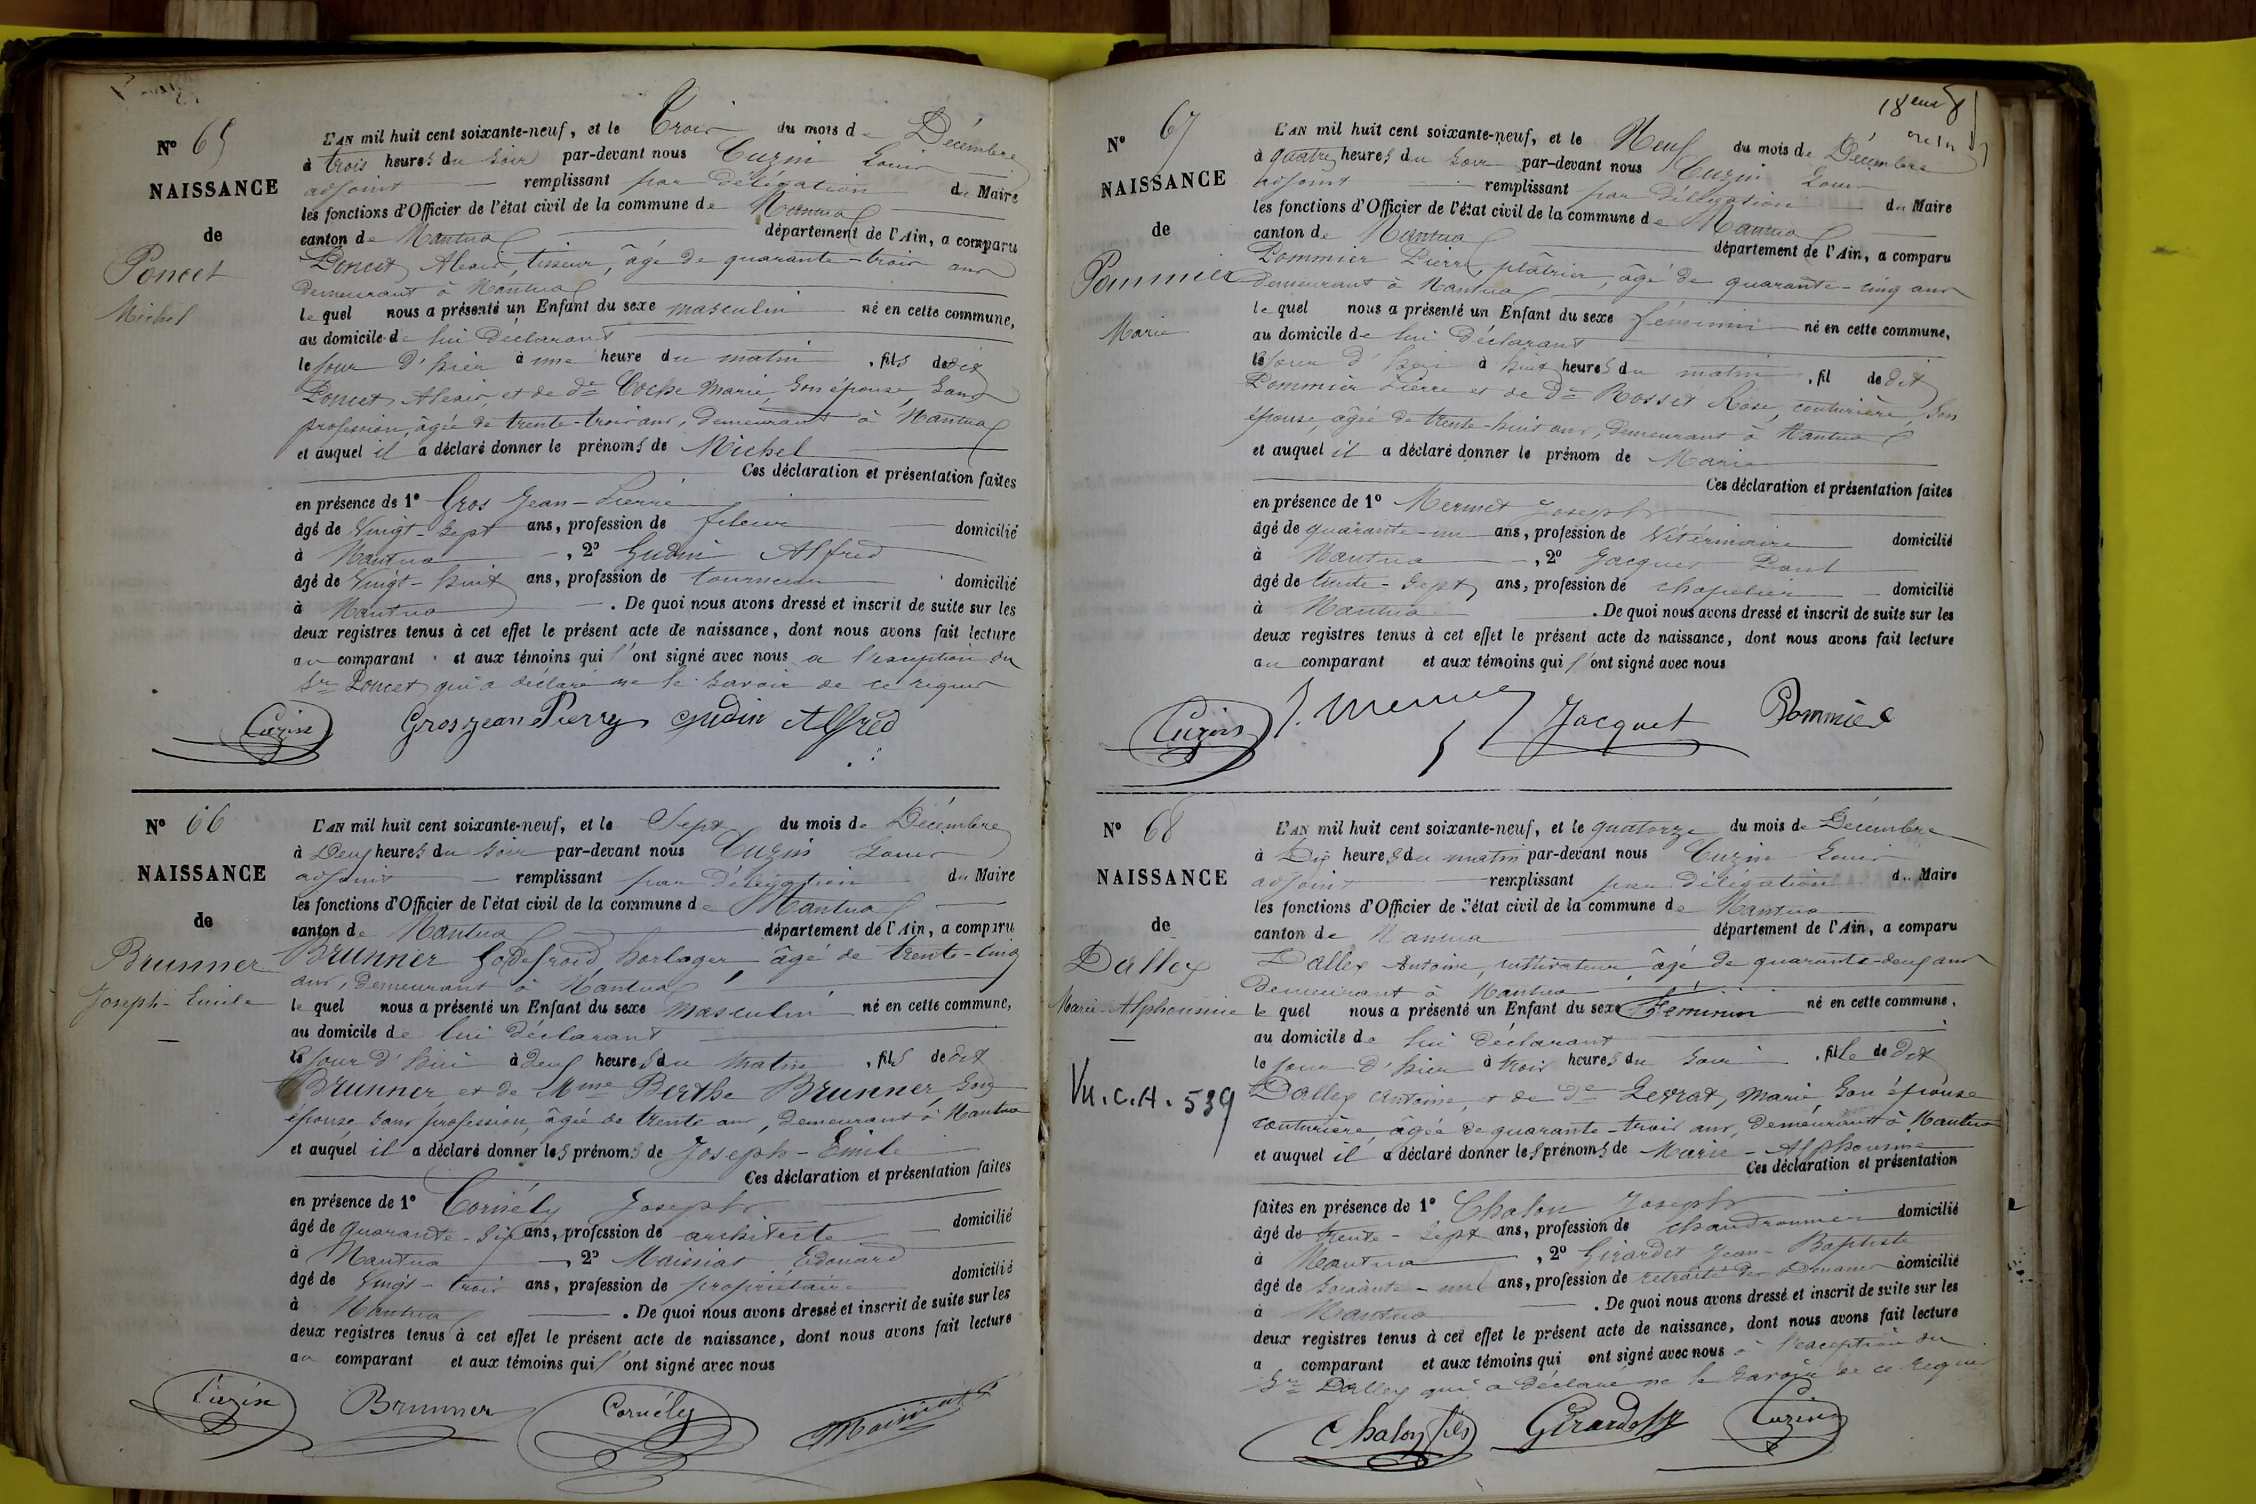 N° 65
NAISSANCE
de
Poncet
Michel
L'AN mil huit cent soixante-neuf, et le Trois du mois de Décembre
à trois heures du soir par-devant nous Cuzin Louis
adjoint remplissant par délégation du Maire
les fonctions d'Officier de l'état civil de la commune de Nantua
canton de Nantua département de l'Ain, a comparu
Poncet Alexis, tisseur, âgé de quarante-trois ans
demeurant à Nantua
lequel nous a présenté un Enfant du sexe masculin né en cette commune,
au domicile de lui déclarant
le jour d'hier à une heure du matin, fils de dit
Poncet Alexis, et de de Coche Marie, son épouse, sans
profession, âgée de trente-trois ans, demeurant à Nantua
et auquel il a déclaré donner le prénoms de Michel
Ces déclaration et présentation faites
en présence de 1° Gros Jean-Pierre
âgé de Vingt-sept ans, profession de fileur domicilié
à Nantua, 2° Gudin Alfred
âgé de Vingt-huit ans, profession de tourneur domicilié
à Nantua. De quoi nous avons dressé et inscrit de suite sur les
deux registres tenus à cet effet le présent acte de naissance, dont nous avons fait lecture
au comparant et aux témoins qui l'ont signé avec nous a l'exception du
Sr Poncet qui a déclaré ne le savoir de ce requis
Cuzin Grosjean Pierre Gudin Alfred
N° 66
NAISSANCE
de
Brunner
Joseph-Emile
L'AN mil huit cent soixante-neuf, et le Sept du mois de Décembre
à Deux heures du soir par-devant nous Cuzin Louis
adjoint remplissant par délégation du Maire
les fonctions d'Officier de l'état civil de la commune de Nantua
canton de Nantua département de l'Ain, a comparu
Brunner Godefroid, horloger, âgé de trente-cinq
ans, demeurant à Nantua
lequel nous a présenté un Enfant du sexe Masculin né en cette commune,
au domicile de lui déclarant
le jour d'hier à deux heures du matin, fils de dit
Brunner, et de Mme Berthe Brunner, son
épouse sans profession, âgée de trente ans, demeurant à Nantua
et auquel il a déclaré donner les prénoms de Joseph-Emile
Ces déclaration et présentation faites
en présence de 1° Cornély Joseph
âgé de quarante-six ans, profession de architecte domicilié
à Nantua, 2° Maissiat Edouard
âgé de Vingt-trois ans, profession de propriétaire domicilié
à Nantua. De quoi nous avons dressé et inscrit de suite sur les
deux registres tenus à cet effet le présent acte de naissance, dont nous avons fait lecture
au comparant et aux témoins qui l'ont signé avec nous
Cuzin Brunner Cornély Maissiat
N° 67
NAISSANCE
de
Pommier
Marie
L'AN mil huit cent soixante-neuf, et le Neuf du mois de Décembre
à quatre heures du soir par-devant nous Cuzin Louis
adjoint remplissant par délégation du Maire
les fonctions d'Officier de l'état civil de la commune de Nantua
canton de Nantua département de l'Ain, a comparu
Pommier Pierre, plâtrier, âgé de quarante-cinq ans
demeurant à Nantua
lequel nous a présenté un Enfant du sexe féminin né en cette commune,
au domicile de lui déclarant
le jour d'hier à huit heures du matin, fil de dit
Pommier Pierre et de De Rosset Rose, couturière, son
épouse, âgée de trente-huit ans, demeurant à Nantua
et auquel il a déclaré donner le prénom de Marie
Ces déclaration et présentation faites
en présence de 1° Mermet Joseph
âgé de quarante-un ans, profession de Vétérinaire domicilié
à Nantua, 2° Jacquet Paul
âgé de trente-sept ans, profession de chapelier domicilié
à Nantua. De quoi nous avons dressé et inscrit de suite sur les
deux registres tenus à cet effet le présent acte de naissance, dont nous avons fait lecture
au comparant et aux témoins qui l'ont signé avec nous
Cuzin J. Mermet Jacquet Pommier
N° 68
NAISSANCE
de
Dallex
Marie-Alphonsine
Vu.C.A.539
L'AN mil huit cent soixante-neuf, et le quatorze du mois de Décembre
à Dix heures du matin par-devant nous Cuzin Louis
adjoint remplissant par délégation du Maire
les fonctions d'Officier de l'état civil de la commune de Nantua
canton de Nantua département de l'Ain, a comparu
Dallex Antoine, cultivateur, âgé de quarante-deux ans
demeurant à Nantua
lequel nous a présenté un Enfant du sexe Féminin né en cette commune,
au domicile de lui déclarant
le jour d'hier à trois heures du soir, fille de dit
Dallex Antoine, et de de Levrat, Marie, son épouse
couturière, âgée de quarante-trois ans, demeurant à Nantua
et auquel il a déclaré donner les prénoms de Marie-Alphonsine
Ces déclaration et présentation
faites en présence de 1° Chalon Joseph
âgé de trente-sept ans, profession de chaudronnier domicilié
à Nantua, 2° Girardet Jean-Baptiste
âgé de soixante-un ans, profession de retraité des Douanes domicilié
à Nantua. De quoi nous avons dressé et inscrit de suite sur les
deux registres tenus à cet effet le présent acte de naissance, dont nous avons fait lecture
a comparant et aux témoins qui ont signé avec nous à l'exception du
Sr Dallex qui a déclaré ne le savoir de ce requis
Chalon fils Girardet Cuzin